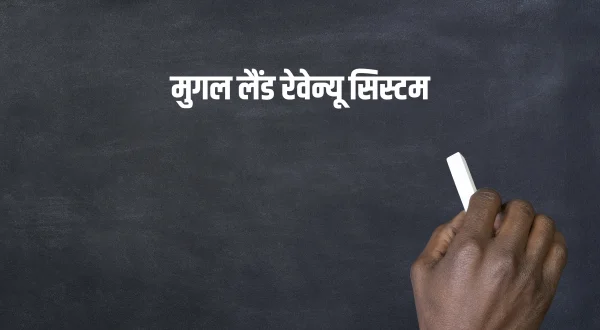 मुगल लैंड रेवेन्यू सिस्टम